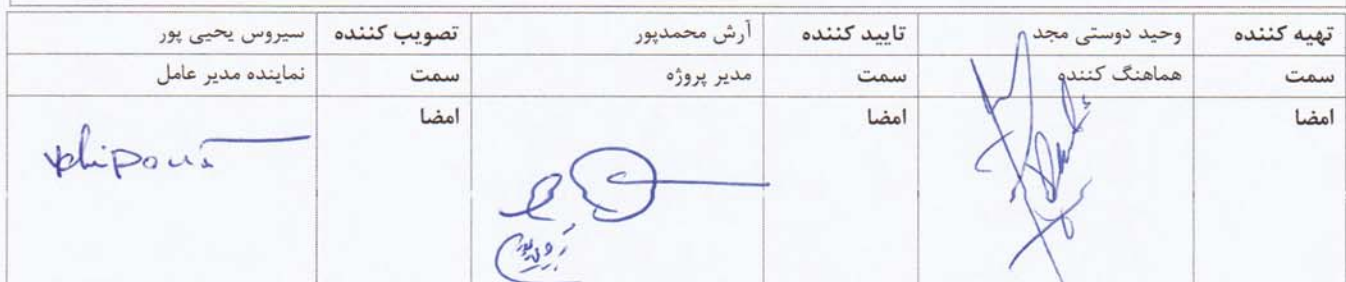 تهیه کننده وحید دوستی مجد تایید کننده آرش محمدپور تصویب کننده سیروس یحیی پور
سمت هماهنگ کننده سمت مدیر پروژه سمت نماینده مدیر عامل
امضا امضا امضا